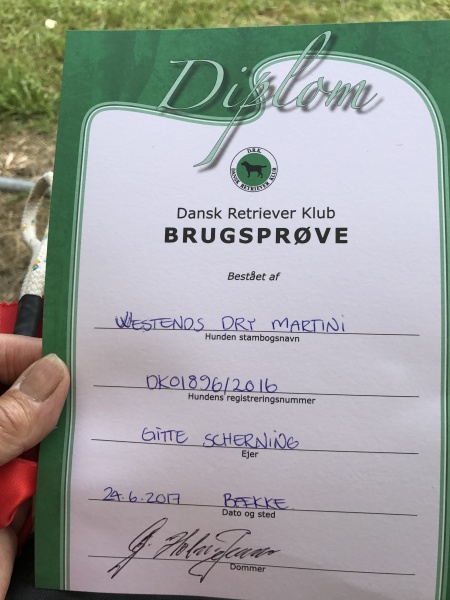 Diplom
D.R.K.
DANSK RETRIEVER KLUB
Dansk Retriever Klub
BRUGSPRØVE
Bestået af
WESTENDS DRY MARTINI
Hunden stambogsnavn
DK01896/2016
Hundens registreringsnummer
GITTE SCHERNING
Ejer
24.6.2017 BÆKKE
Dato og sted
Dommer